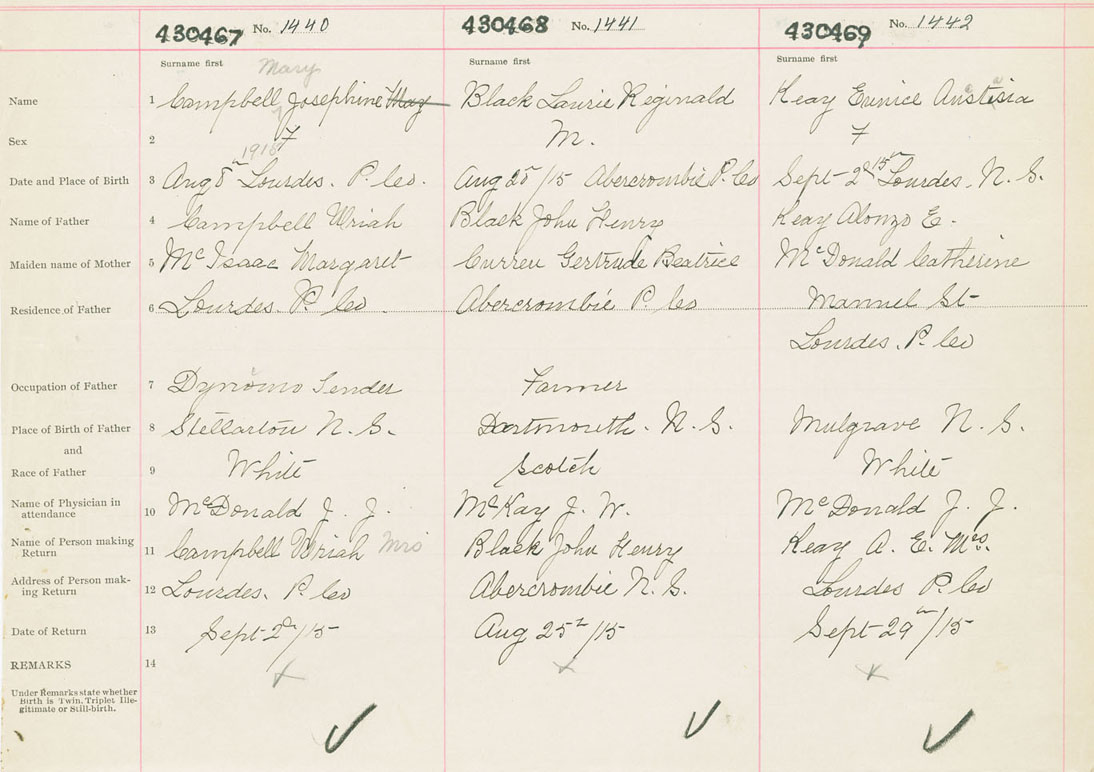 430467 No. 1440 430468 No. 1441 430469 No. 1442
Surname first Surname first Surname first
Mary
Name 1 Campbell Josephine May Black Laurie Reginald Keay Eunice Anstasia
a
Sex 2 F M. F
1915
Date and Place of Birth 3 Aug 8th Lourdes. P. Co. Aug 25/15 Abercrombie P. Co Sept 2nd 15 Lourdes. N. S.
Name of Father 4 Campbell Uriah Black John Henry Keay Alonzo E.
Maiden name of Mother 5 McIsaac Margaret Curren Gertrude Beatrice McDonald Catherine
Residence of Father 6 Lourdes. P. Co. Abercrombie P. Co Manuel St
Lourdes. P. Co
Occupation of Father 7 Dynomo Tender Farmer
Place of Birth of Father 8 Stellarton N. S. Dartmouth. N. S. Mulgrave N. S.
and
Race of Father 9 White Scotch White
Name of Physician in attendance 10 McDonald J. J. McKay J. W. McDonald J. J.
Name of Person making Return 11 Campbell Uriah Mrs Black John Henry Keay A. E. Mrs.
Address of Person making Return 12 Lourdes. P. Co Abercrombie N. S. Lourdes P. Co
Date of Return 13 Sept 2nd/15 Aug 25th/15 Sept 29th/15
REMARKS 14 x x x
Under Remarks state whether
Birth is Twin, Triplet Ille-
gitimate or Still-birth.